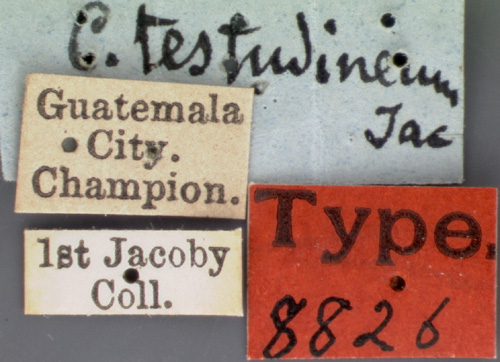 C. testudineum
Jac
Guatemala
City.
Champion.
1st Jacoby
Coll.
Type.
8826